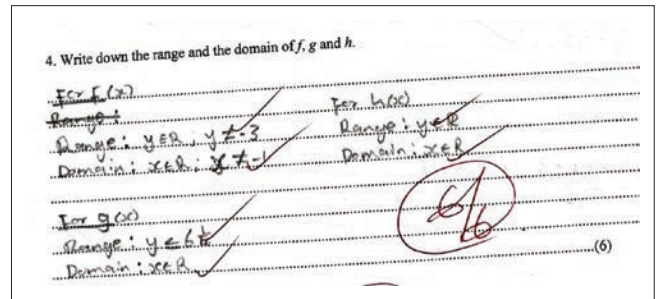 4. Write down the range and the domain of f, g and h.
For f(x)
Range:
Range: y∈R; y≠-3
Domain: x∈R; x≠-1
For h(x)
Range: y∈R
Domain: x∈R
For g(x)
Range: y≤6¼
Domain: x∈R
6/6
(6)